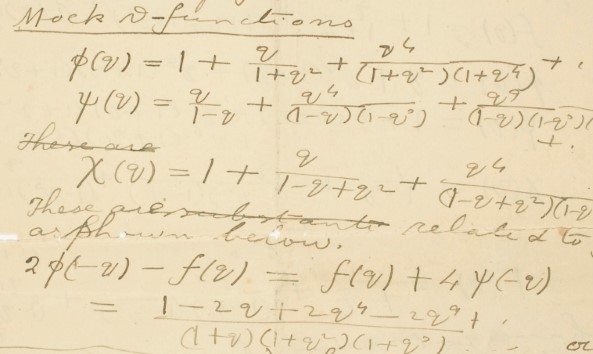 Mock ϑ-functions
φ(q) = 1 + q/(1+q²) + q⁴/((1+q²)(1+q⁴)) + ·
ψ(q) = q/(1-q) + q⁴/((1-q)(1-q³)) + q⁹/((1-q)(1-q³)( + ·
There are
χ(q) = 1 + q/(1-q+q²) + q⁴/((1-q+q²)(1-q
These are related to
as shown below.
2φ(-q) - f(q) = f(q) + 4ψ(-q)
= (1-2q+2q⁴-2q⁹+ · ·)/((1+q)(1+q²)(1+q³)